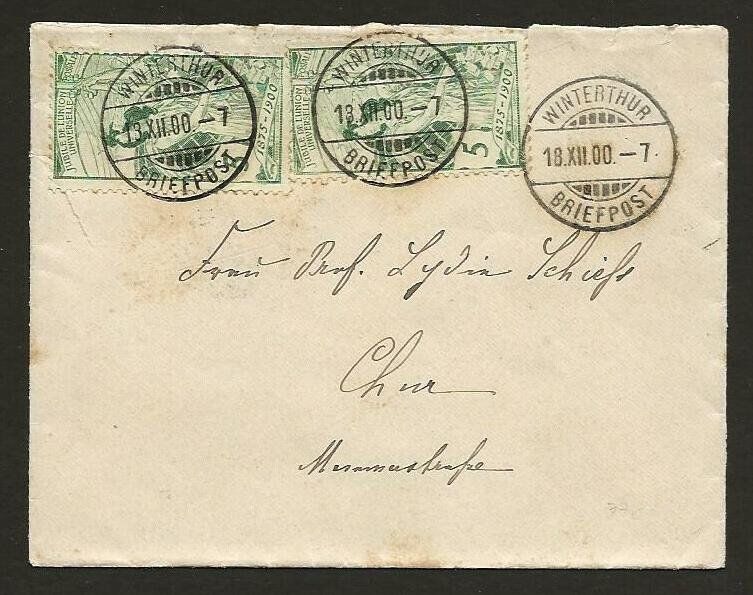 JUBILÉ DE L'UNION
UNIVERSELLE
1875-1900
WINTERTHUR
18.XII.00.-7
BRIEFPOST
JUBILÉ DE L'UNION
UNIVERSELLE
1875-1900
5
WINTERTHUR
18.XII.00.-7
BRIEFPOST
WINTERTHUR
18.XII.00.-7
BRIEFPOST
Frau Prof. Lydia Schieß
Chur